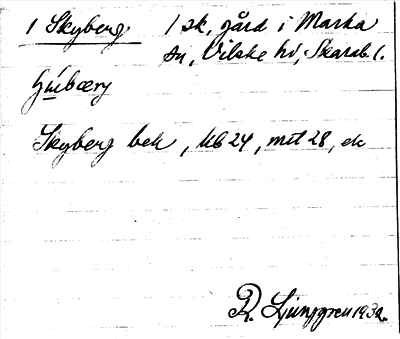 1 Skyberg 1 sk, gård i Marka
sn, Vilske hd, Skarab. l.
Skyberg bek, UB 24, mtl 28, ek
R. Ljunggren 1932.